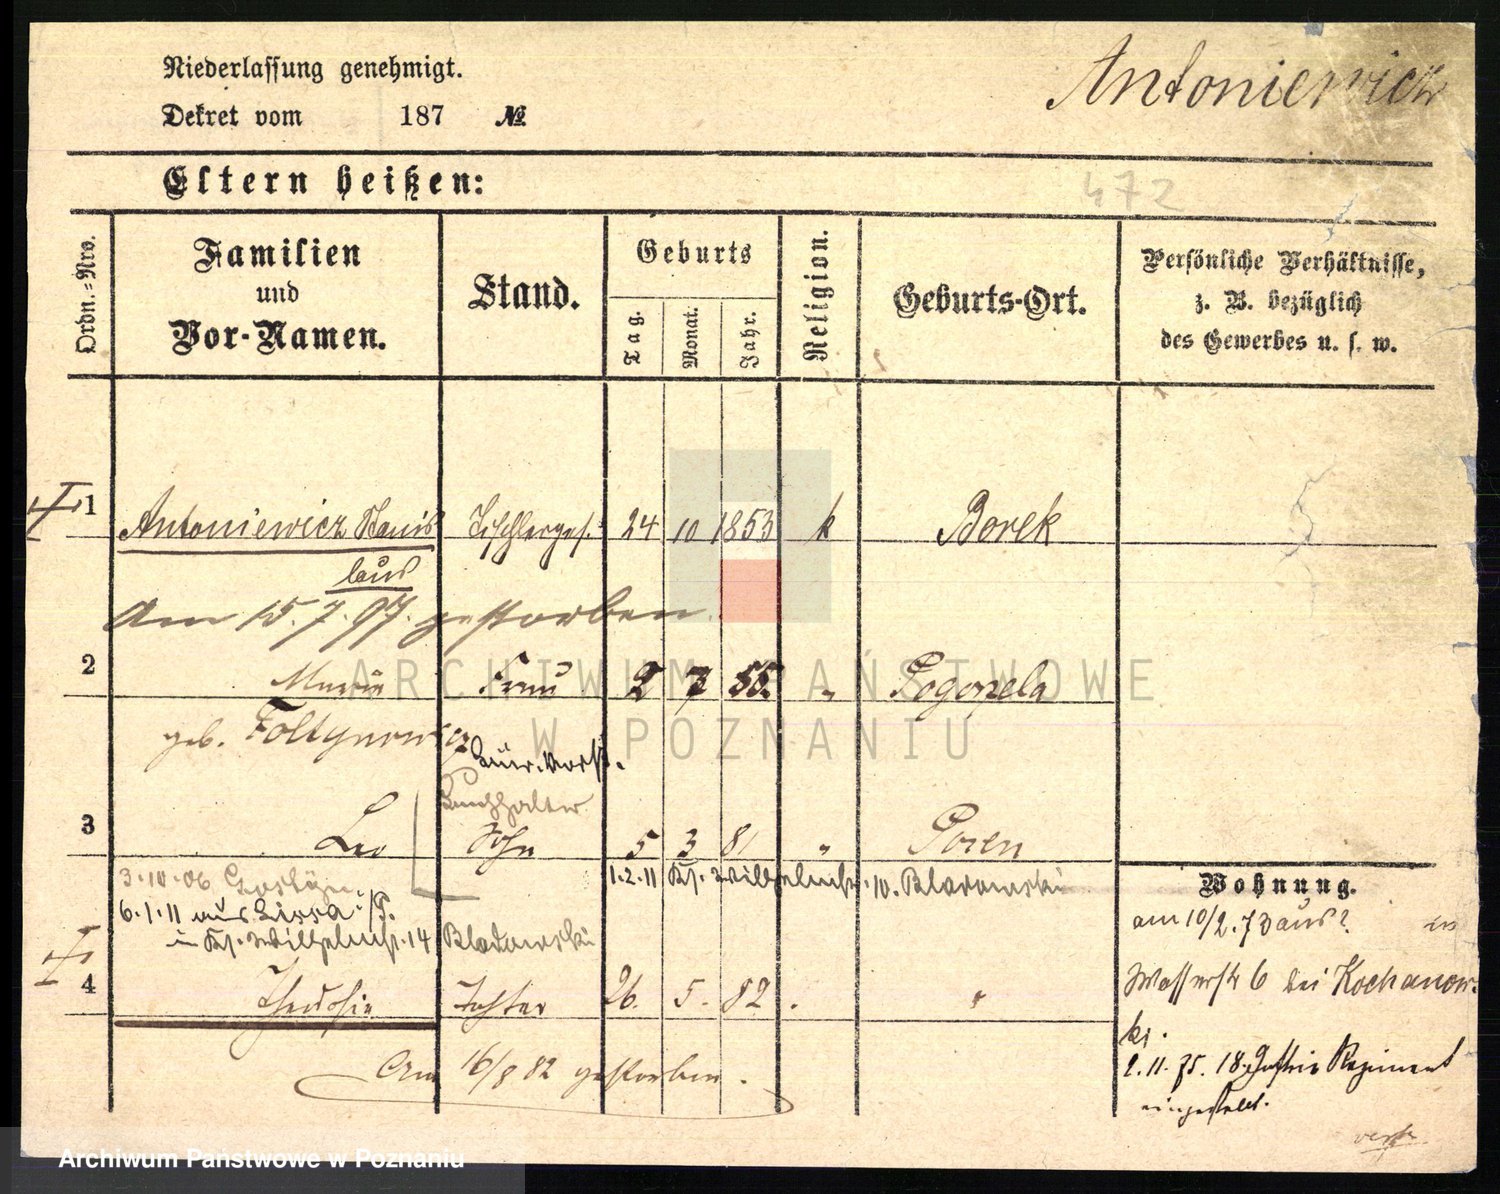 Niederlassung genehmigt.
Antoniewicz
Dekret vom 187 №
Eltern heißen:
472
Ordn.=Nro.
Familien
und
Vor-Namen.
Stand.
Geburts
Tag.
Monat.
Jahr.
Religion.
Geburts-Ort.
Persönliche Verhältnisse,
z. B. bezüglich
des Gewerbes u. s. w.
1 Antoniewicz Stanis Tischlerges. 24 10 1853 k Borek
laus
Am 15.7.97. gestorben.
2 Marie Frau 2 7 55. " Pogorzela
geb. Foltynowicz
Buchhalter
3 Leo Sohn 5 3 81 " Posen
3.10.06 Gostyn
1.2.11 Ks. Wilhelmstr. 10. Blazowski
6.1.11 aus Lissa i/P.
in Ks. Wilhelmstr. 14
4 Theodosia Tochter 26. 5. 82 . "
Am 16/8 82 gestorben.
Wohnung.
am 10/2.73 aus?
Wasserstr 6 bei Kochanow-
ki.
2.11.75. 18. Regiment
eingestellt.
ARCHIWUM PAŃSTWOWE
W POZNANIU
Archiwum Państwowe w Poznaniu